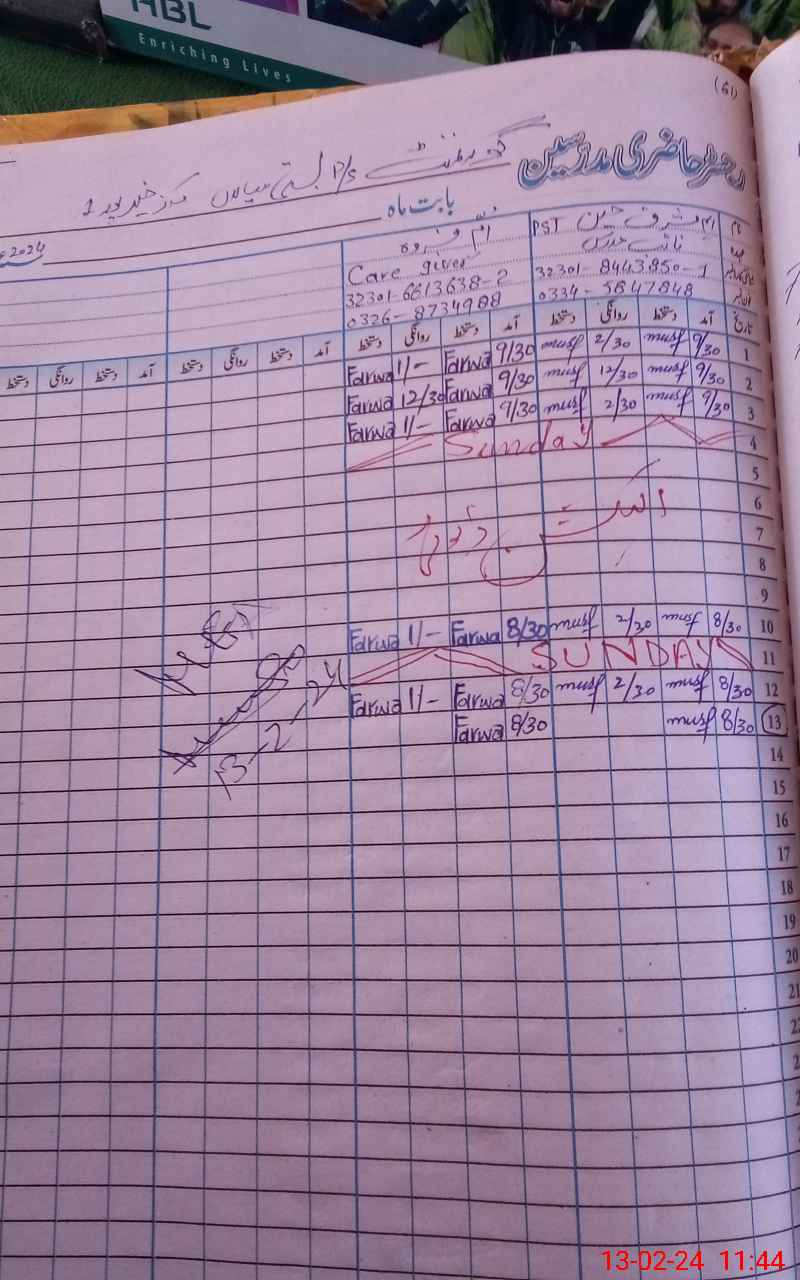 HBL
Enriching Lives
(61)
رجسٹر حاضری مدرسین
گورنمنٹ P/S بستی میاں مرکز خیرپور 1
بابت ماہ
2024
نام
PST
Care giver
32301-8443850-1
32301-6613638-2
0334-5847848
0326-8734988
تاریخ آمد دستخط روانگی دستخط آمد دستخط روانگی دستخط آمد دستخط روانگی دستخط آمد دستخط روانگی دستخط
1 9/30 musf 2/30 musf 9/30 Farwa 1/- Farwa
2 9/30 musf 12/30 musf 9/30 Farwa 12/30 Farwa
3 9/30 musf 2/30 musf 9/30 Farwa 1/- Farwa
4 Sunday
5
6
7
8
9
10 8/30 musf 2/30 musf 8/30 Farwa 1/- Farwa
11 SUNDAY
12 8/30 musf 2/30 musf 8/30 Farwa 1/- Farwa
13 8/30 musf 8/30 Farwa
13-2-24
14
15
16
17
18
19
20
13-02-24 11:44